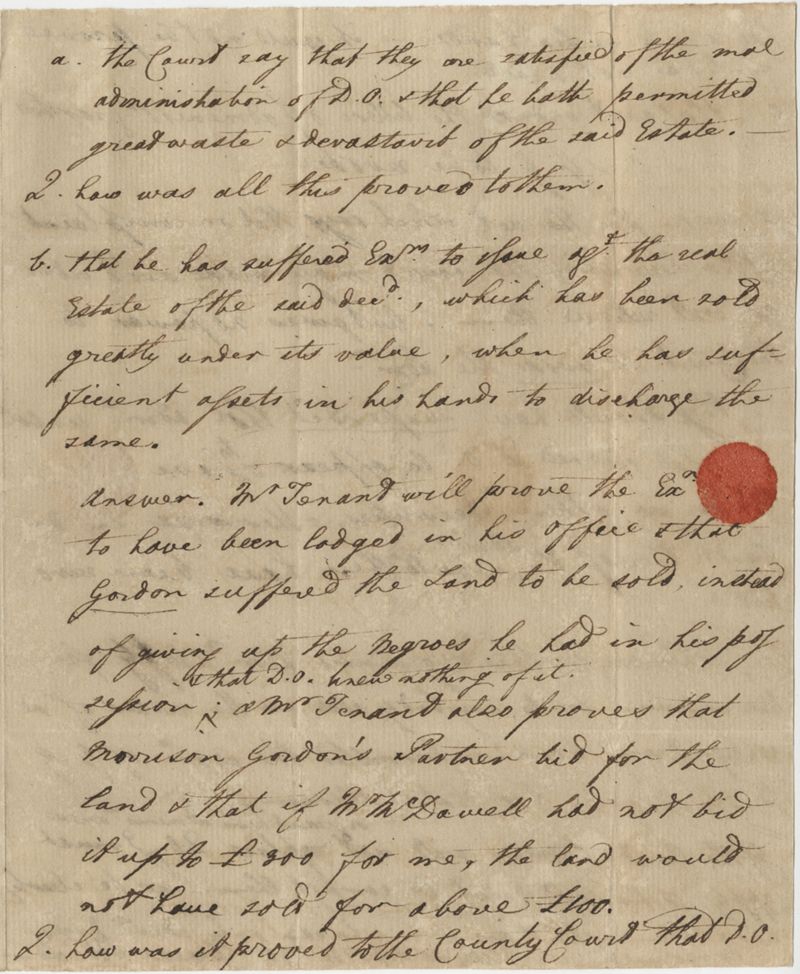 a. the Court say that they are satisfied of the mal
administration of D.O. & that he hath permitted
great waste & devastavit of the said Estate. —
2. how was all this proved to them.
b. that he has suffered Exns to issue agt. the real
Estate of the said decd., which has been sold
greatly under its value, when he has suf=
ficient assets in his hands to discharge the
same.
Answer. Mr Tenant will prove the Exn
to have been lodged in his office & that
Gordon suffered the Land to be sold, instead
of giving up the Negroes he had in his pos
& that D.O. knew nothing of it.
session; & Mr Tenant also proves that
Morrison Gordon's Partner bid for the
land & that if Mr McDowell had not bid
it up to £300 for me, the land would
not have sold for above £100.
2. how was it proved to the County Court that D.O.